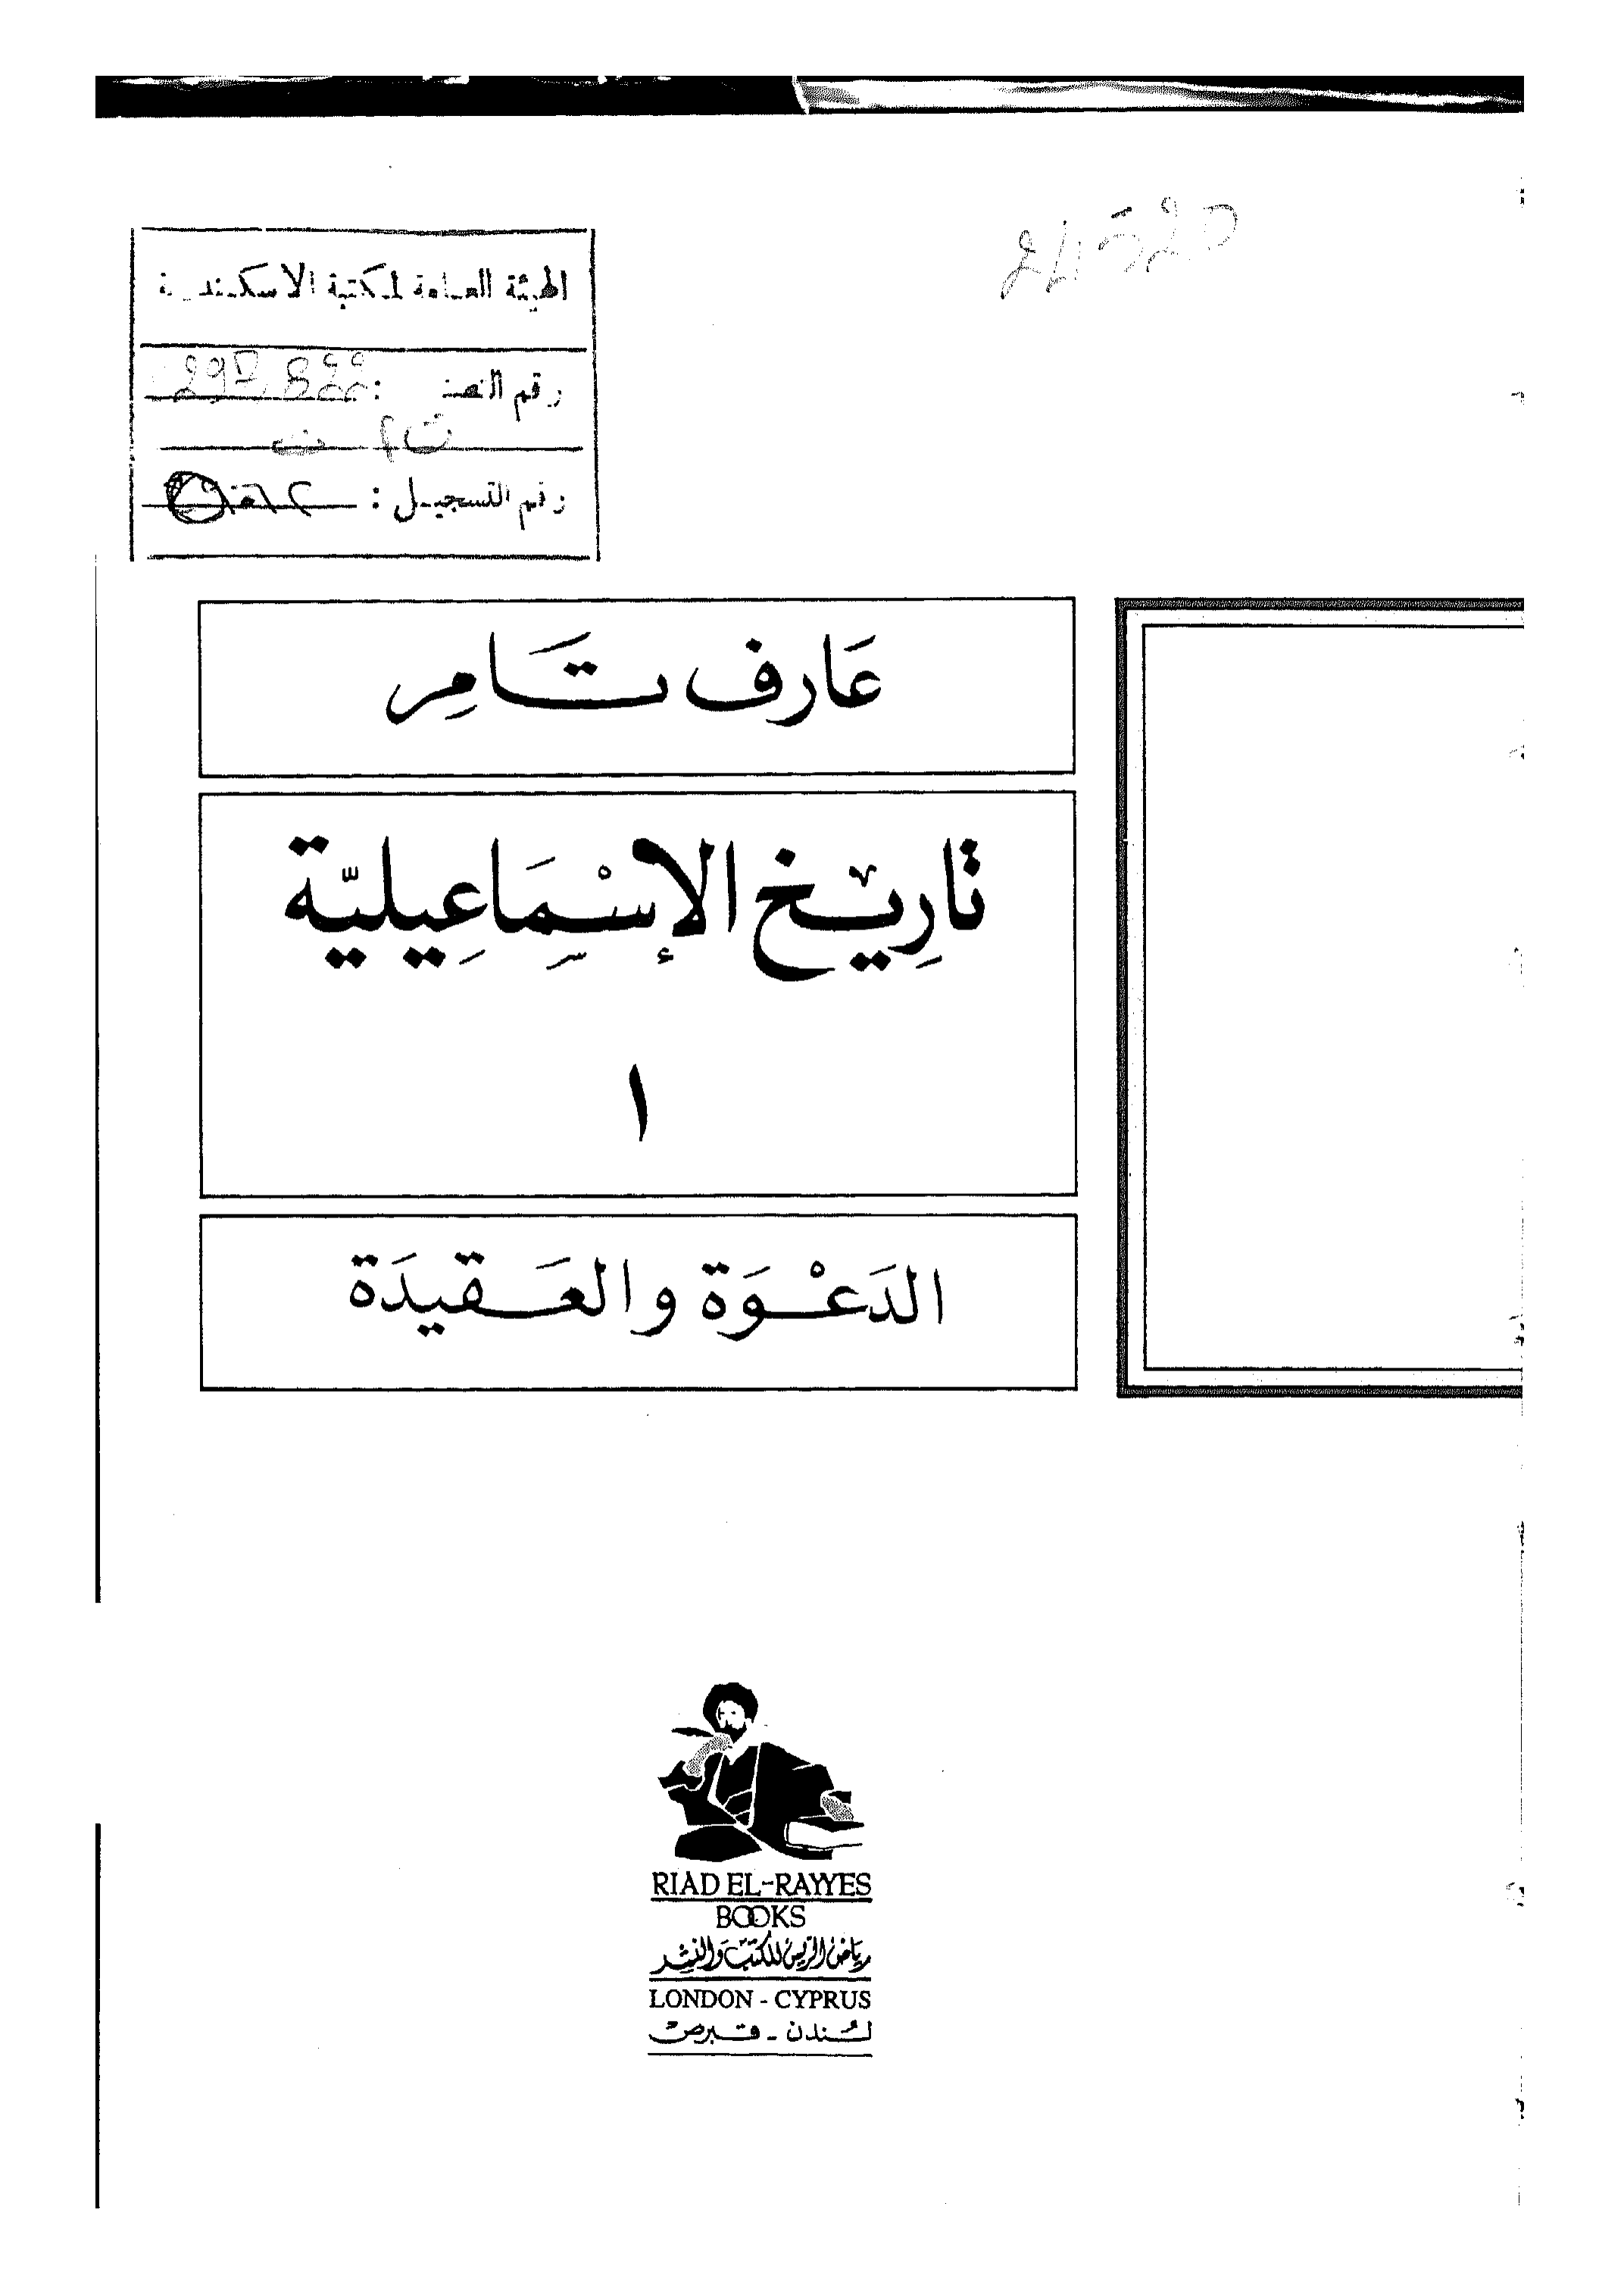 الهيئة العامة لمكتبة الاسكندرية
رقم التصنـ :
رقم التسجيـل :
عَارف تَامِر
تَارِيْخ الإِسْمَاعِيليّة
١
الدَعْوَة والعَقيدَة
RIAD EL-RAYYES
BOOKS
رياض الريس للكتب والنشر
LONDON - CYPRUS
لندن - قبرص